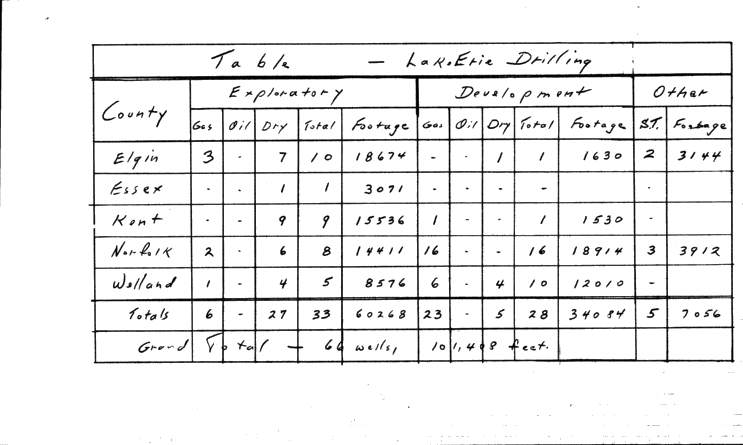 Table — Lake Erie Drilling
County Exploratory Development Other
Gas Oil Dry Total Footage Gas Oil Dry Total Footage S.T. Footage
Elgin 3 - 7 10 18674 - - 1 1 1630 2 3144
Essex - - 1 1 3071 - - - - -
Kent - - 9 9 15536 1 - 1 1530 -
Norfolk 2 - 6 8 14411 16 - - 16 18914 3 3912
Welland 1 - 4 5 8576 6 - 4 10 12010 -
Totals 6 - 27 33 60268 23 - 5 28 34084 5 7056
Grand Total — 66 wells, 101,408 feet.